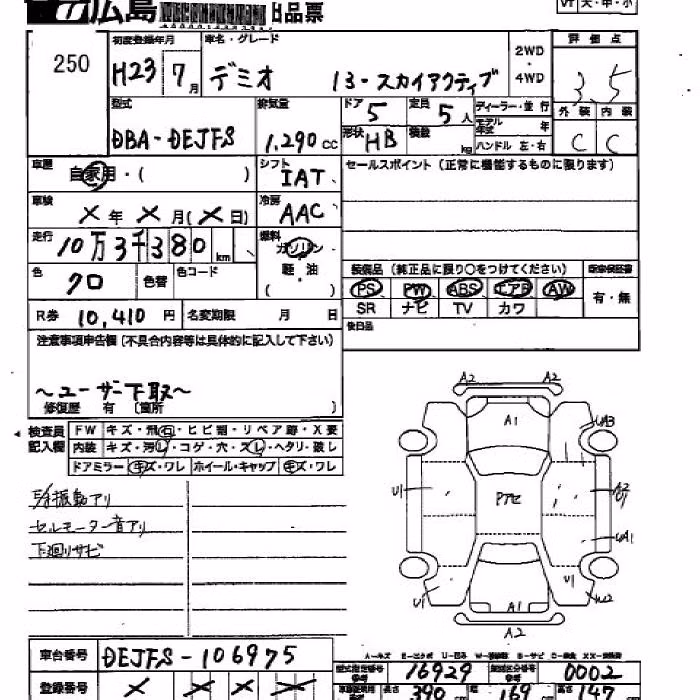 広島 出品票
VT 大・中・小
250 初度登録年月 車名・グレード 2WD・4WD 評価点
H23 7月 デミオ 13-スカイアクティブ 3.5
型式 排気量 ドア 5 定員 5人 ディーラー・並行 外装 内装
DBA-DEJFS 1,290cc 形状 HB 積載 kg モデル年式 年 C C
ハンドル 左・右
車歴 自家用・( ) シフト IAT セールスポイント (正常に機能するものに限ります)
車検 ×年×月(×日) 冷房 AAC
走行 10万3千380km 燃料 ガソリン・軽油・( )
色 クロ 色替 色コード 装備品 (純正品に限り○をつけてください)
PS PW ABS エアB AW 有・無
SR ナビ TV カワ
R券 10,410円 名変期限 月 日 後日品
注意事項申告欄 (不具合内容等は具体的に記入して下さい)
~ユーザー下取~
修復歴 有 (箇所 )
検査員記入欄 FW キズ・飛石・ヒビ割・リペア跡・X要
内装 キズ・汚レ・コゲ・穴・ズレ・ヘタリ・破レ
ドアミラー キズ・ワレ ホイール・キャップ キズ・ワレ
振動アリ
セルモーター音アリ
下廻りサビ
A2 A2
A1 UA3
U1 Pアセ A2 U1
UA1
U1 A1 U1 W2
A2
車台番号 DEJFS-106975
登録番号 × × × ×
16929 0002
長さ 390 169 高さ 147